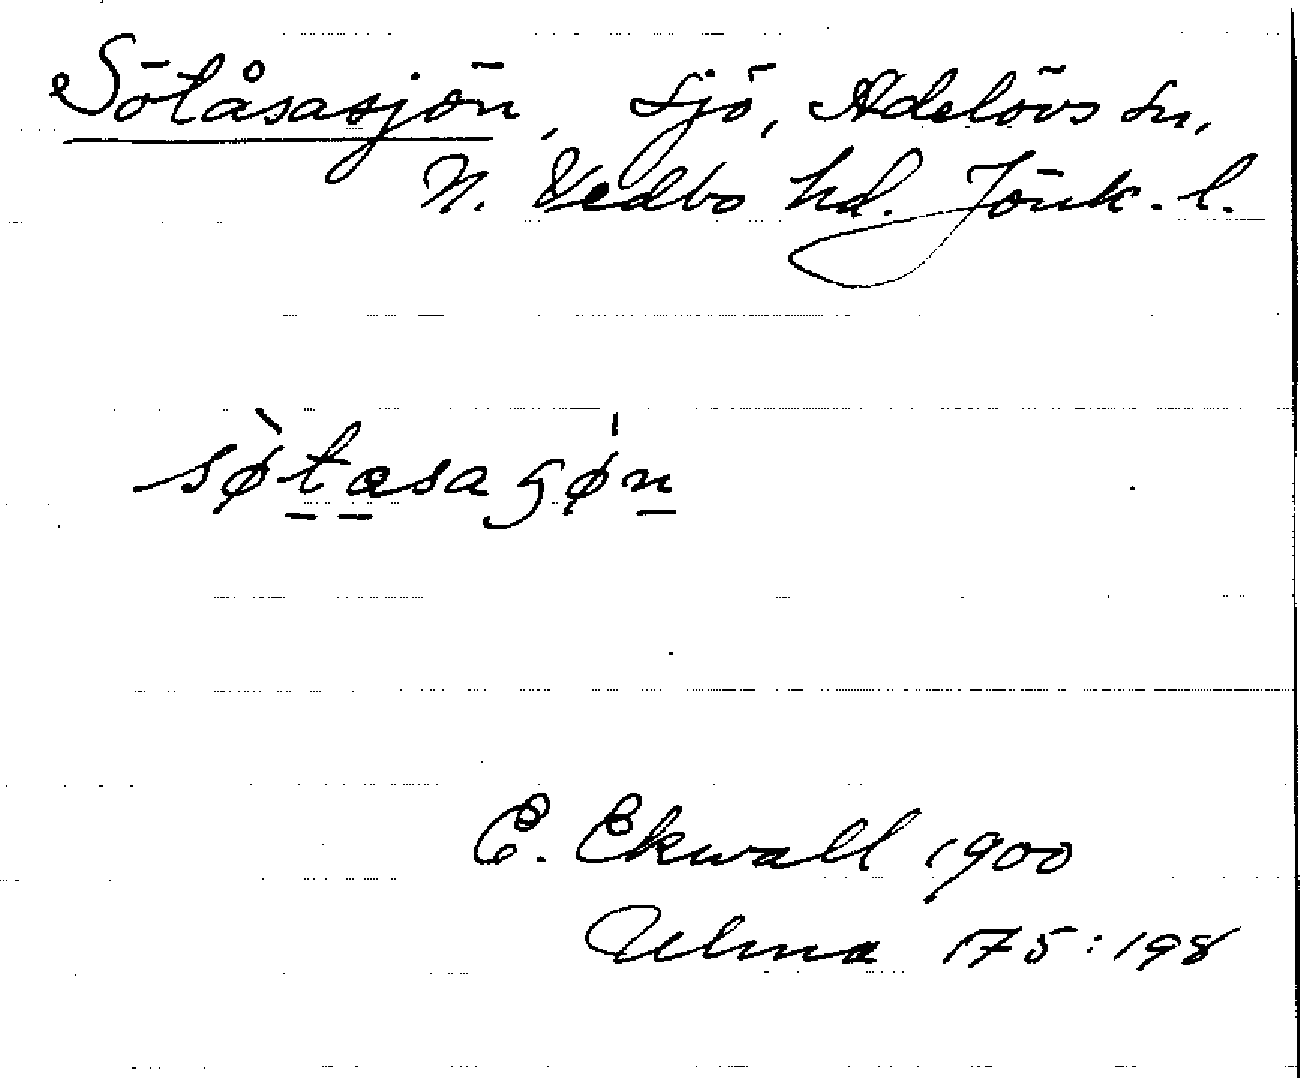 Sötåsasjön, sjö, Adelövs sn,
N. Vedbo hd. Jönk. l.
sø̀tasaʂø̍n
E. Ekwall 1900
Ulma 175:198